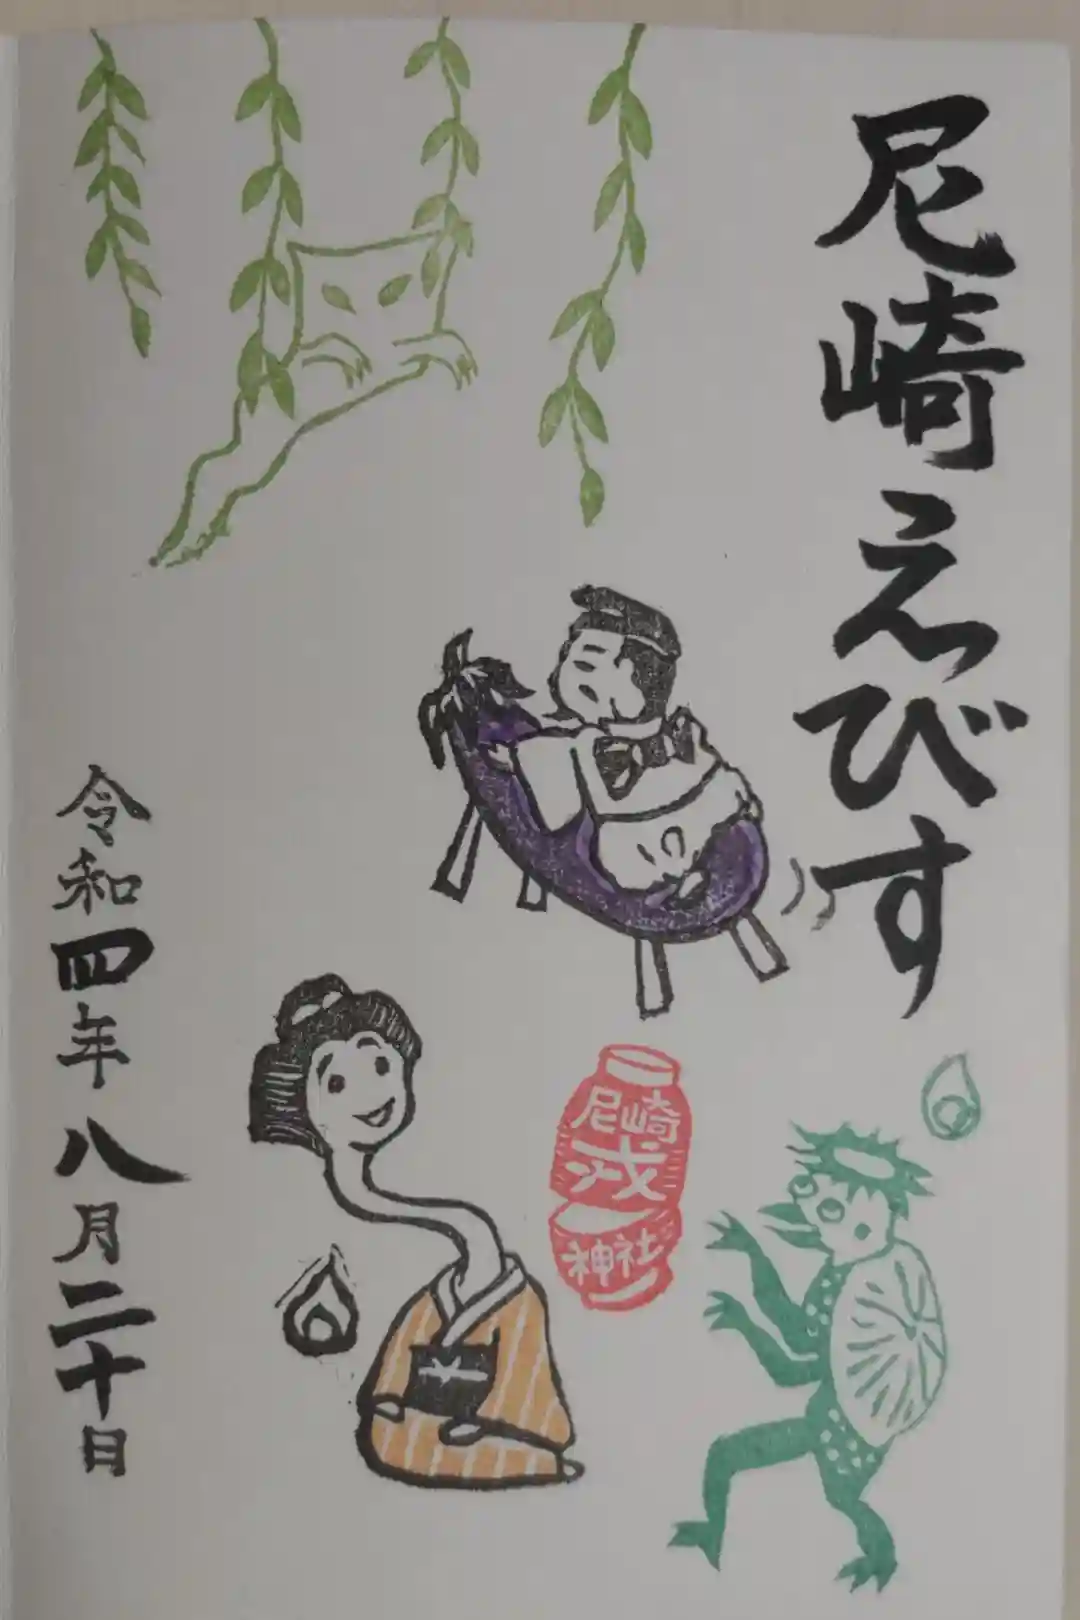 尼崎えびす
尼崎
戎
神社
令和四年八月二十日